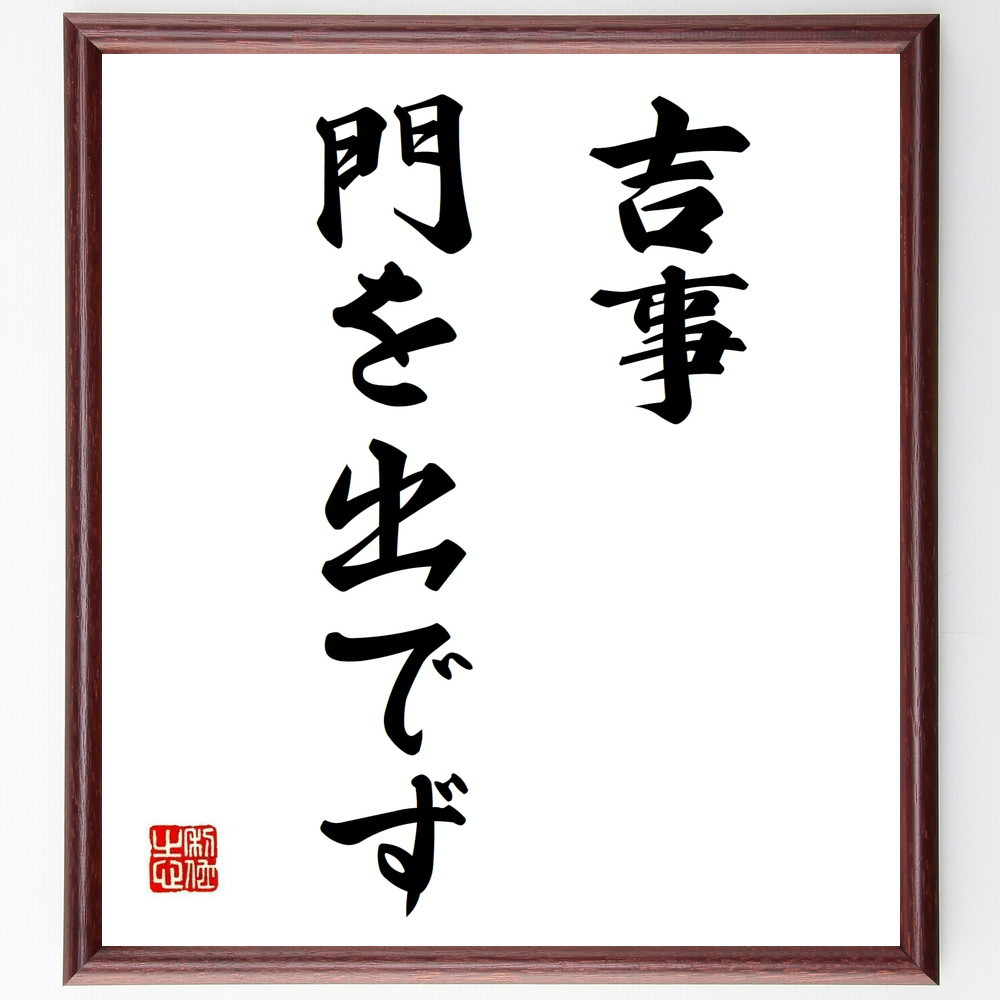 吉事
門を出でず